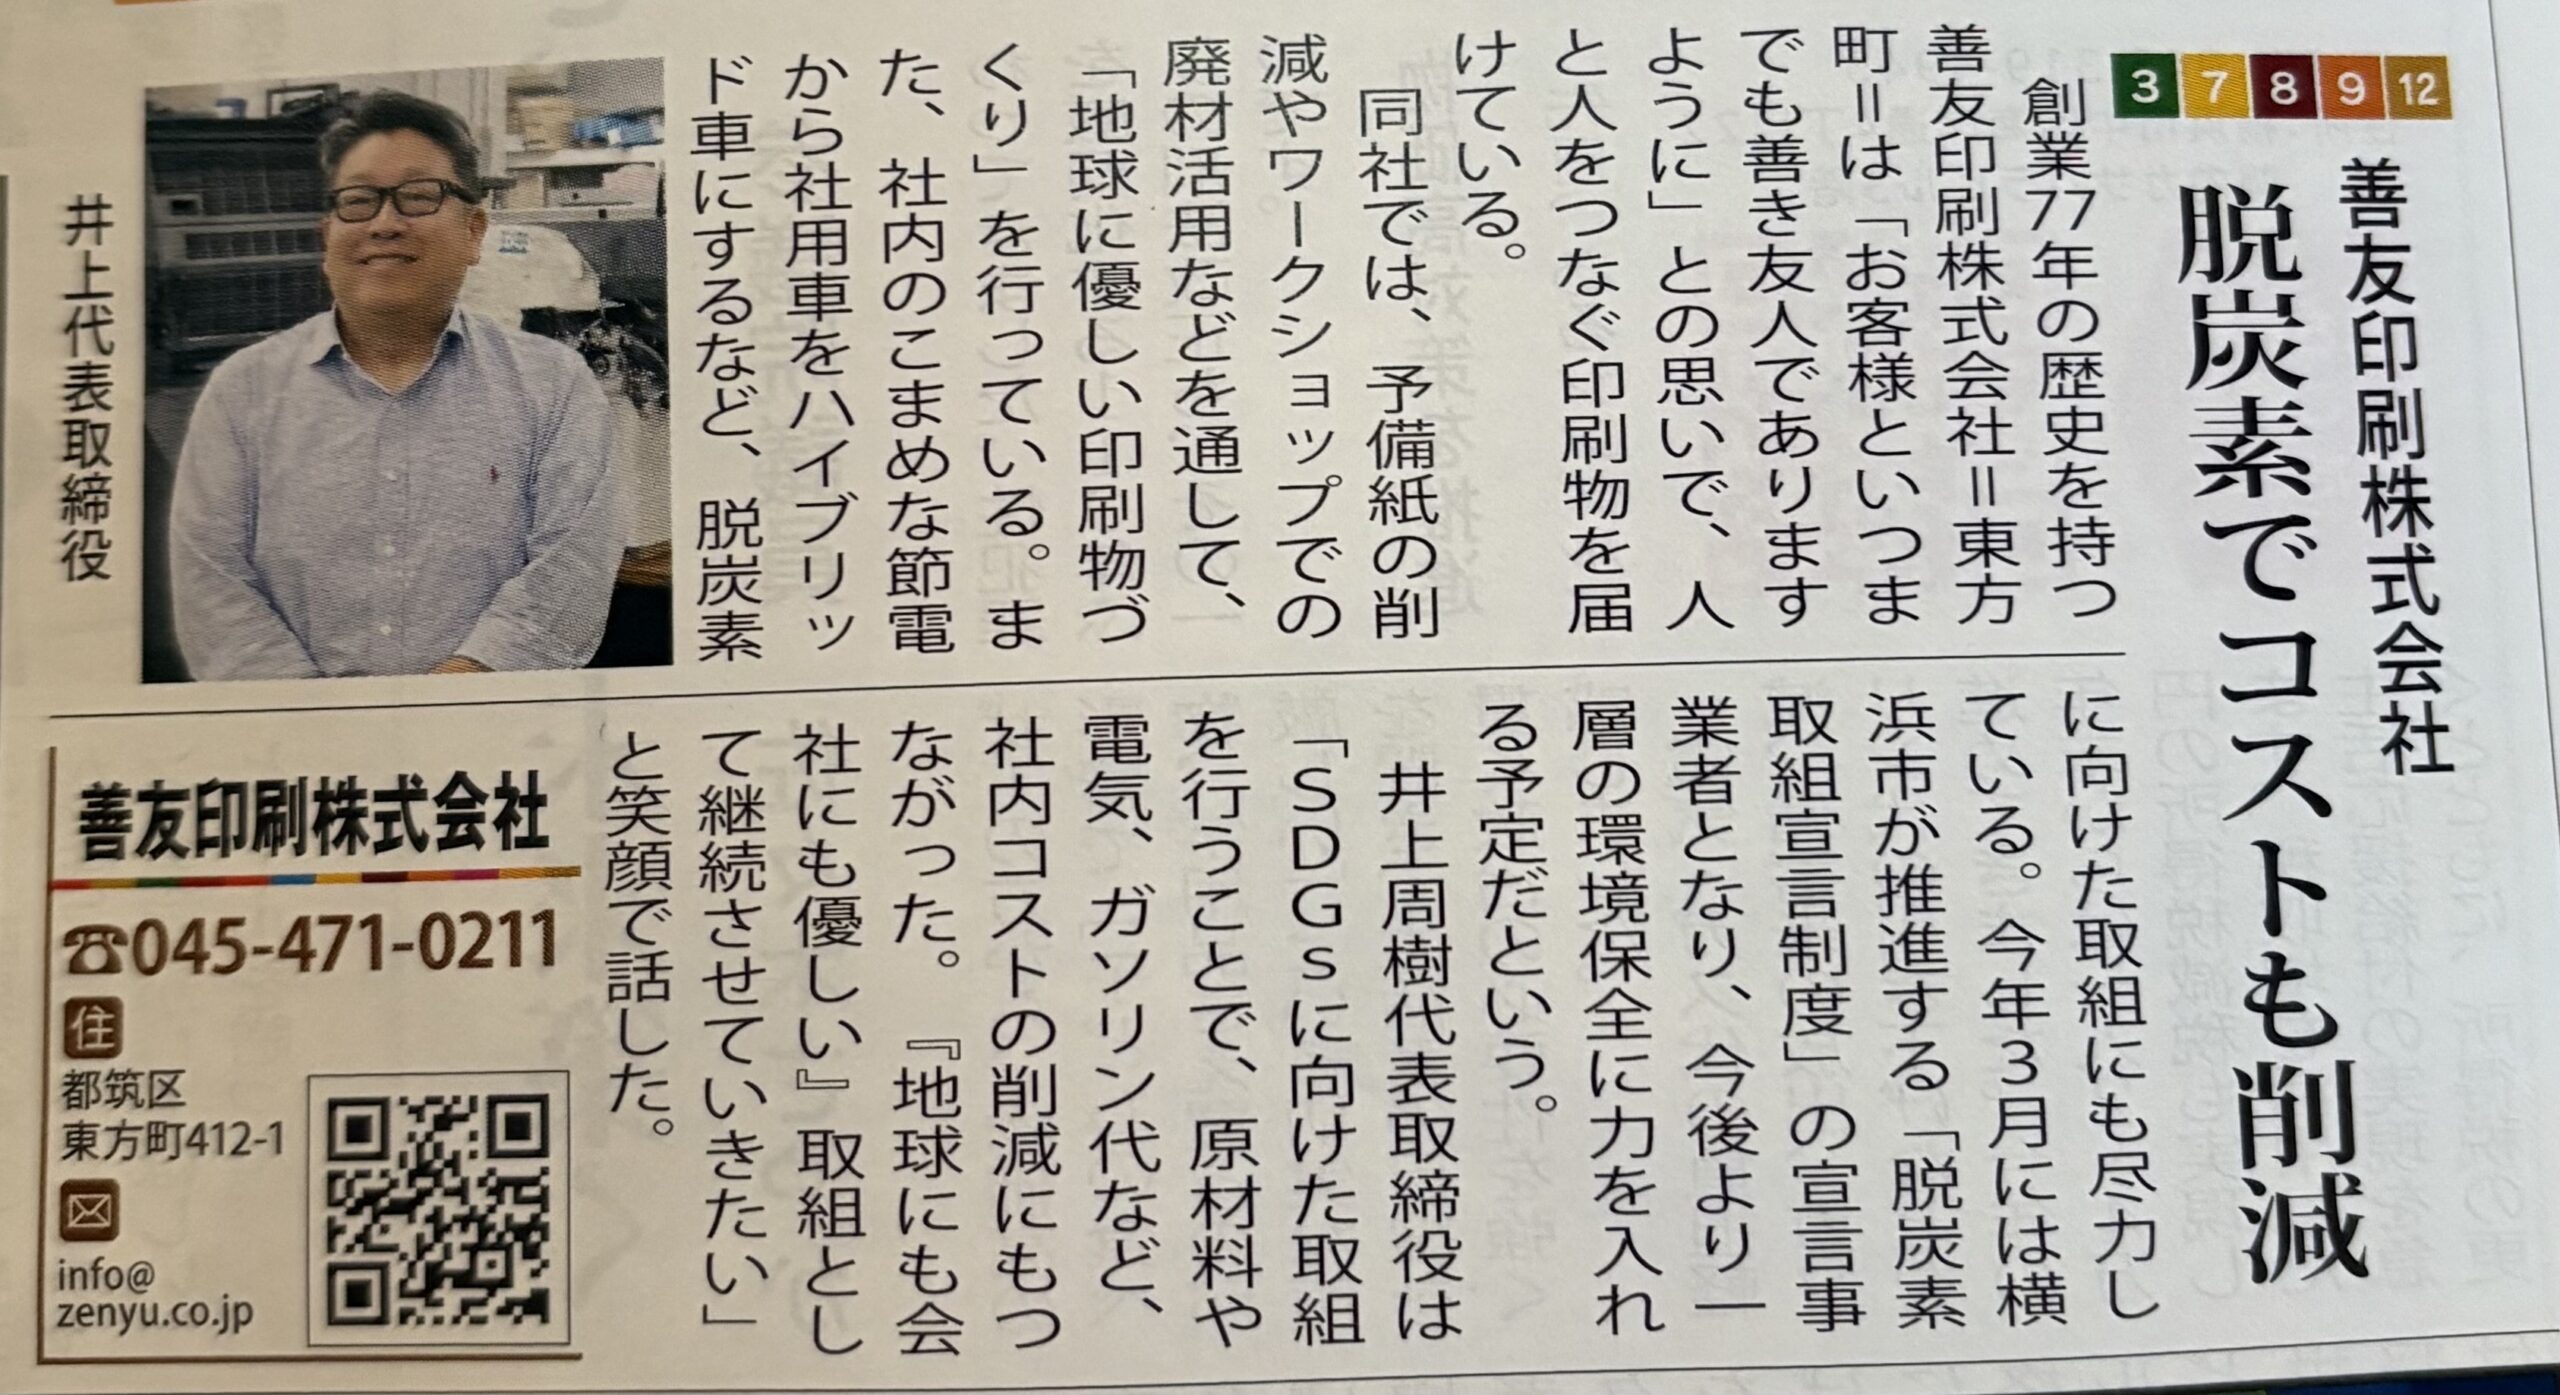 3 7 8 9 12
善友印刷株式会社
脱炭素でコストも削減
創業77年の歴史を持つ
善友印刷株式会社＝東方
町＝は「お客様といつま
でも善き友人であります
ように」との思いで、人
と人をつなぐ印刷物を届
けている。
同社では、予備紙の削
減やワークショップでの
廃材活用などを通して、
「地球に優しい印刷物づ
くり」を行っている。ま
た、社内のこまめな節電
から社用車をハイブリッ
ド車にするなど、脱炭素
に向けた取組にも尽力し
ている。今年3月には横
浜市が推進する「脱炭素
取組宣言制度」の宣言事
業者となり、今後より一
層の環境保全に力を入れ
る予定だという。
井上周樹代表取締役は
「SDGsに向けた取組
を行うことで、原材料や
電気、ガソリン代など、
社内コストの削減にもつ
ながった。『地球にも会
社にも優しい』取組とし
て継続させていきたい」
と笑顔で話した。
井上代表取締役
善友印刷株式会社
☎045-471-0211
住
都筑区
東方町412-1
info@
zenyu.co.jp